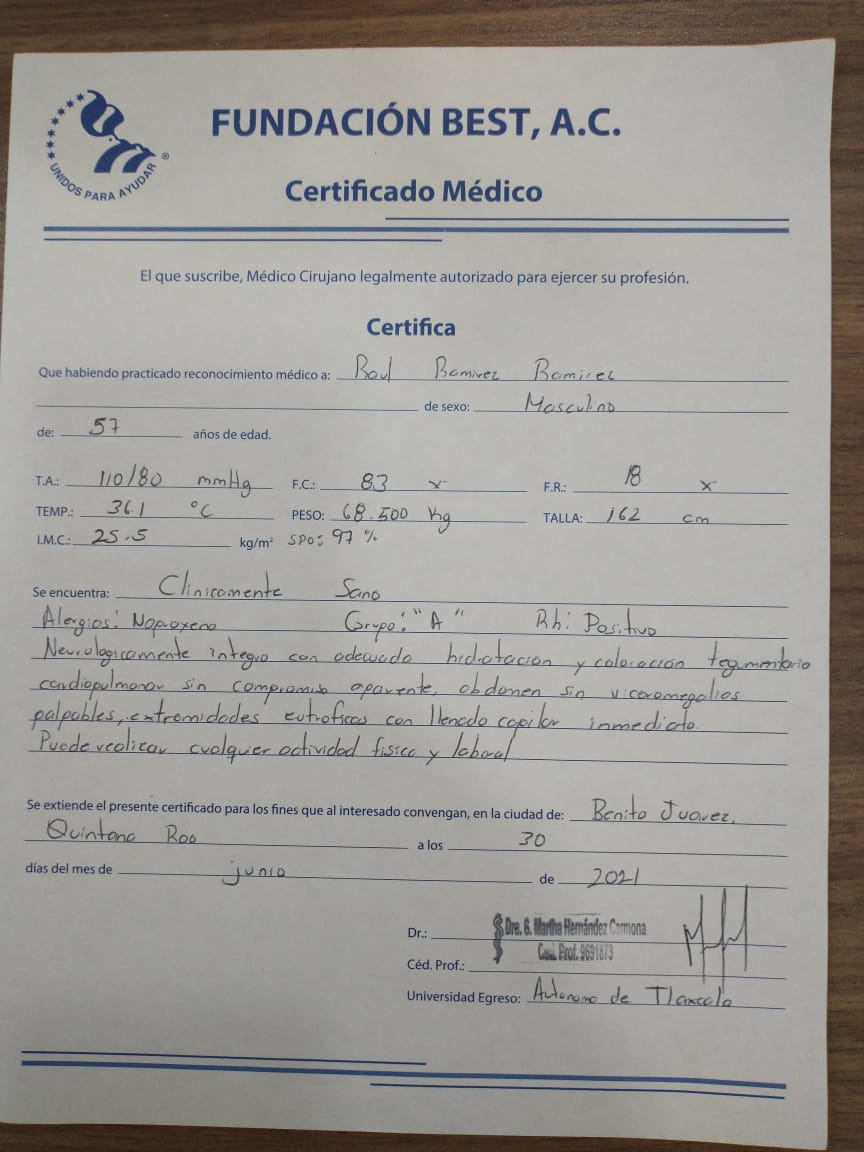 UNIDOS PARA AYUDAR ®
FUNDACIÓN BEST, A.C.
Certificado Médico
El que suscribe, Médico Cirujano legalmente autorizado para ejercer su profesión.
Certifica
Que habiendo practicado reconocimiento médico a: Raul Ramirez Ramirez
de sexo: Masculino
de: 57 años de edad.
T.A.: 110/80 mmHg F.C.: 83 x' F.R.: 18 x
TEMP.: 36.1 °C PESO: 68.500 Kg TALLA: 162 cm
I.M.C.: 25.5 kg/m² SPO: 97 %
Se encuentra: Clinicamente Sano
Alergias: Naproxeno Grupo: "A" Rh: Positivo
Neurologicamente integro con adecuado hidratacion y coloracion tegumentario
cardiopulmonar sin compromiso aparente, abdomen sin viceromegalias
palpables, extremidades eutroficas con llenado capilar inmediato.
Puede realizar cualquier actividad fisica y laboral
Se extiende el presente certificado para los fines que al interesado convengan, en la ciudad de: Benito Juarez,
Quintana Roo a los 30
días del mes de junio de 2021
Dr.: Dra. G. Martha Hernández Carmona
Céd. Prof.: Ced. Prof. 9691873
Universidad Egreso: Autonoma de Tlaxcala